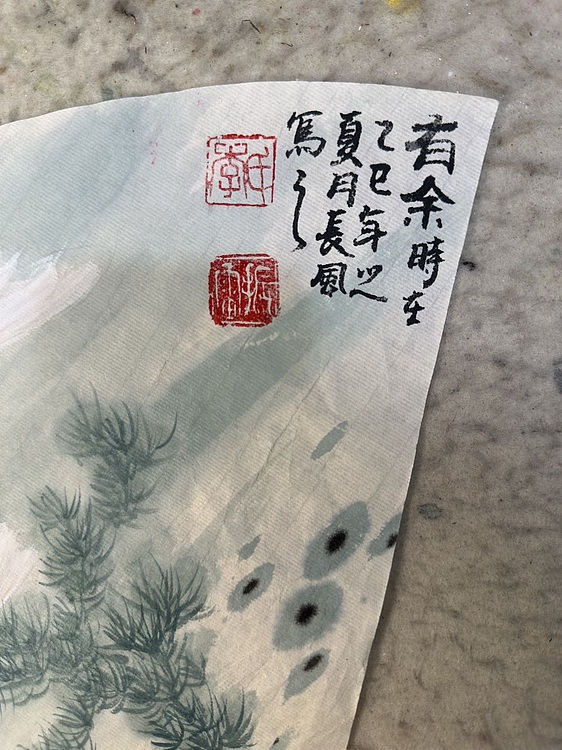 有余時在
乙巳年之
夏月長風
寫之